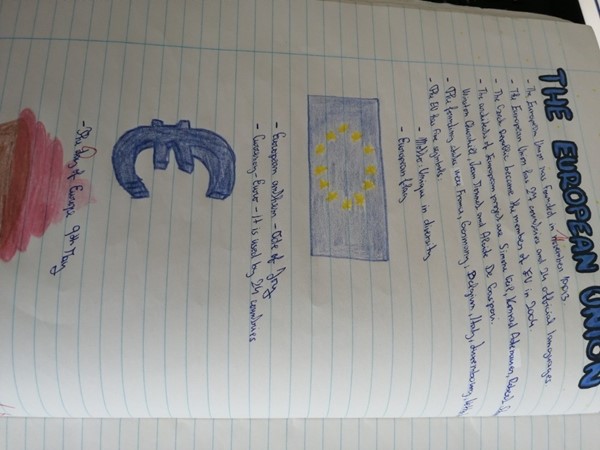 THE EUROPEAN UNION
- The European Union was founded in November 1993
- The European Union has 27 countries and 24 official languages
- The Czech Republic became the member of EU in 2004
- The architects of European project are Simone Veil, Konrad Adenauer, Robert
Winston Churchill, Jean Monnet and Alcide De Gasperi.
- The founding states were France, Germany, Belgium, Italy, Luxembourg,
- The EU has five symbols:
- Motto: Unique in diversity
- European flag
- European anthem - Ode of Joy
- Currency - Euro - It is used by 24 countries
€
- The day of Europe 9th May